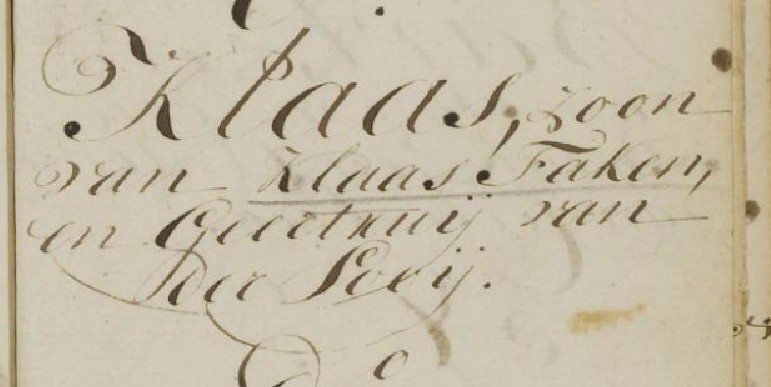 Klaas, zoon
van Klaas Faken,
en Geertruij van
der Looij.